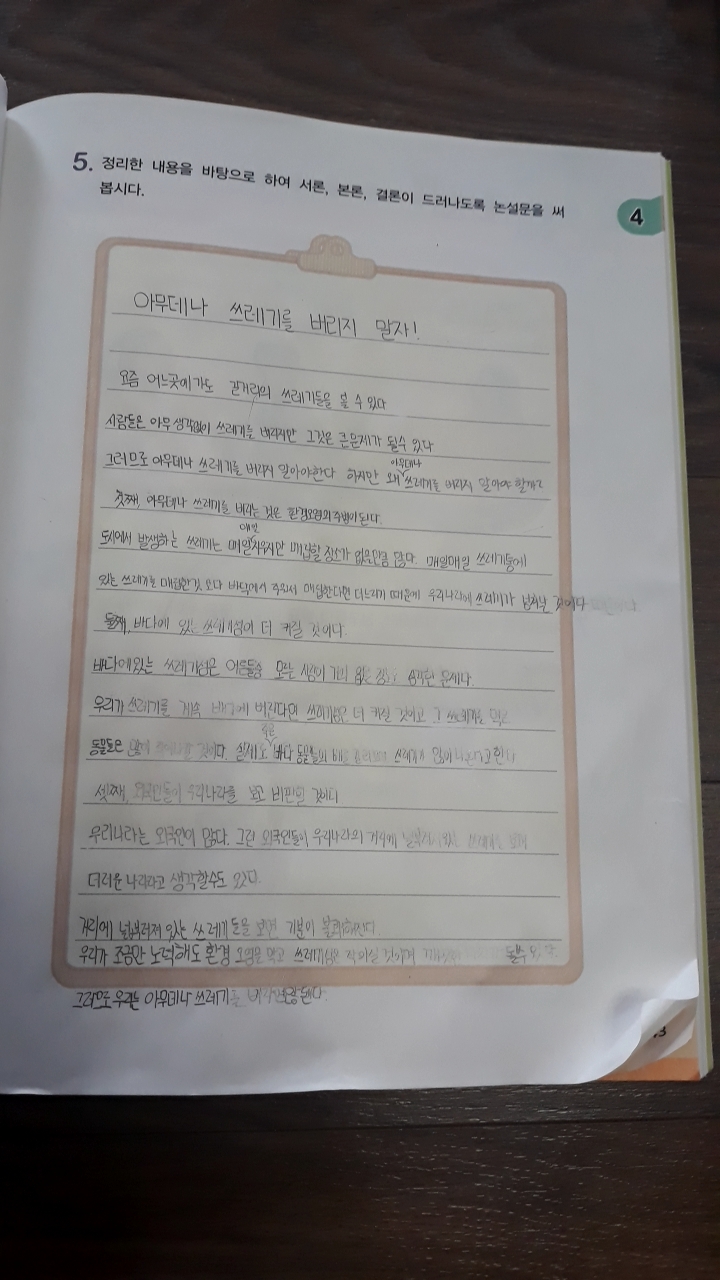 5. 정리한 내용을 바탕으로 하여 서론, 본론, 결론이 드러나도록 논설문을 써
봅시다.
4
아무데나 쓰레기를 버리지 말자!
요즘 어느곳에가도 길거리의 쓰레기들을 볼 수 있다
사람들은 아무 생각없이 쓰레기를 버리지만 그것은 큰문제가 될수 있다
그러므로 아무데나 쓰레기를 버리지 말아야한다 하지만 왜 아무데나 쓰레기를 버리지 말아야 할까?
첫째, 아무데나 쓰레기를 버리는 것은 환경오염의 주범이 된다.
도시에서 발생하는 쓰레기는 매일매일 치우지만 매립할 장소가 없을만큼 많다. 매일매일 쓰레기통에
있는 쓰레기를 매립한것 보다 바닥에서 주워서 매립한다면 더느리기 때문에 우리나라에 쓰레기가 넘쳐날 것이다
둘째, 바다에 있는 쓰레기섬이 더 커질 것이다.
바다에있는 쓰레기섬은 여러들숭 모든 문제다.
우리가 쓰레기를 계속 바다에 버린다면 쓰레기섬은 더 커질 것이고 그 쓰레기를 먹고
동물들은 많이 것이다. 실제로 죽은 바다 동물들의 배를 쓰레기가 많이 나온다고한다
셋째, 외국인들이 우리나라를 보고 비판할 것이다
우리나라는 외국인이 많다. 그런 외국인들이 우리나라의 거리에 있는 쓰레기를 보면
더러운 나라라고 생각할수도 있다.
거리에 널브러져 있는 쓰레기들을 보면 기분이 불쾌해진다.
우리가 조금만 노력해도 환경 오염을 막고 쓰레기섬은 작아질 것이며
그러므로 우리는 아무데나 쓰레기를 안된다.